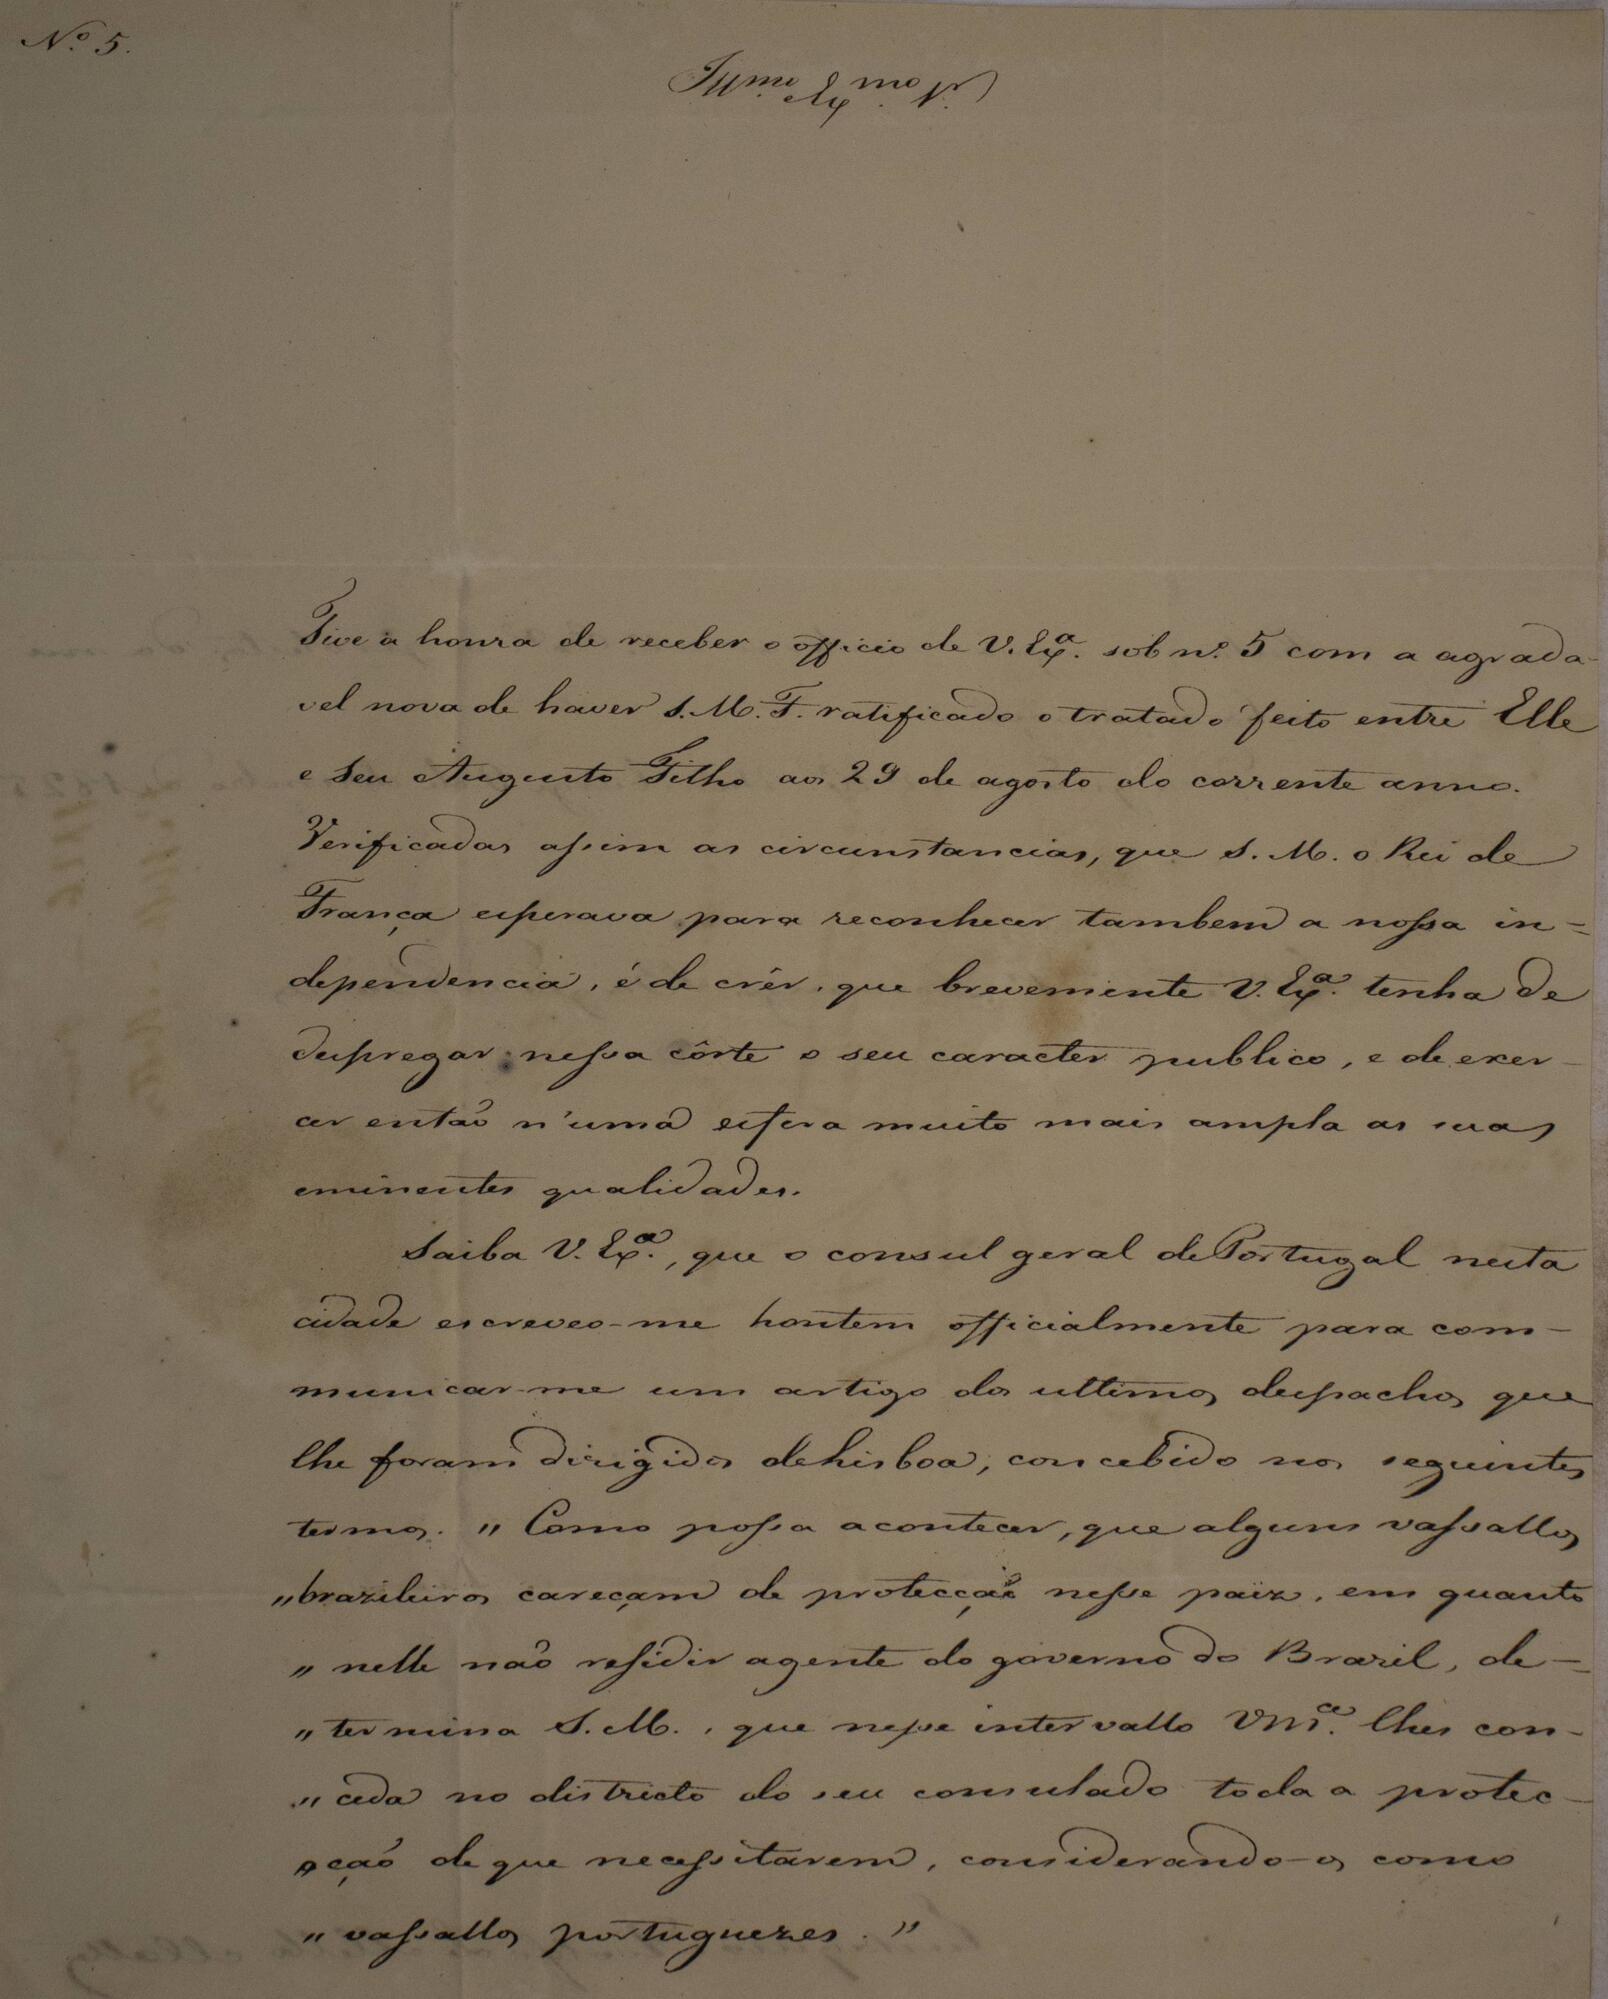 Nº 5.
Illmo e Exmo Snr.
Tive a honra de receber o officio de V. Exª. sob nº. 5 com a agrada-
vel nova de haver S. M. F. ratificado o tratado feito entre Elle
e Seu Augusto Filho aos 29 de agosto do corrente anno.
Verificadas assim as circunstancias, que S. M. o Rei de
França esperava para reconhecer tambem a nossa in-
dependencia, é de crêr, que brevemente V. Exª. tenha de
despregar nessa côrte o seu caracter publico, e de exer-
cer então n'uma esfera muito mais ampla as suas
eminentes qualidades.
Saiba V. Exª., que o consul geral de Portugal nesta
cidade escreveo-me hontem officialmente para com-
municar-me um artigo dos ultimos despachos que
lhe foram dirigidos de Lisboa, concebido nos seguintes
termos. " Como possa acontecer, que alguns vassallos
" brazileiros careçam de protecção nesse paiz, em quanto
" nelle não residir agente do governo do Brazil, de-
" termina S. M., que nesse intervallo Vmce. lhes con-
" ceda no districto do seu consulado toda a protec-
" ção de que necessitarem, considerando-os como
" vassallos portuguezes. "